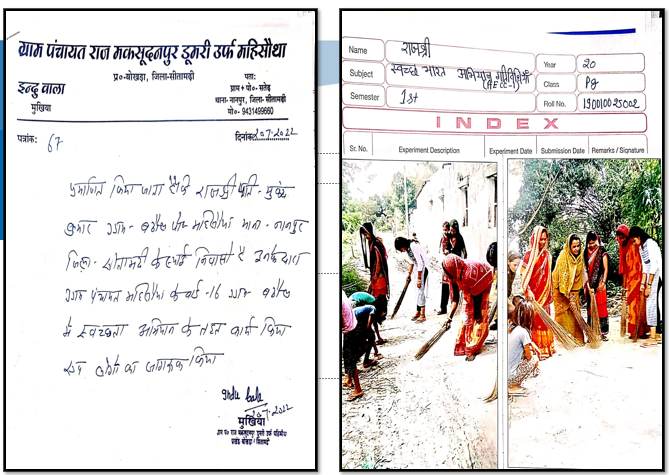 ग्राम पंचायत राज मकसूदनपुर डूमरी उर्फ महिसौथा
प्र०-बोखड़ा, जिला-सीतामढ़ी
इन्दु वाला
मुखिया
पता:
ग्राम + पो०- सतेड़
थाना- नानपुर, जिला-सीतामढ़ी
मो०- 9431499660
पत्रांक: 67
दिनांक 20.7.2022
प्रमाणित किया जाता है कि राजश्री पति - मुकेश
कुमार ग्राम - पो० महिसौथा थाना - नानपुर
जिला - सीतामढ़ी के स्थाई निवासी है इनके द्वारा
ग्राम पंचायत महिसौथा के वार्ड -16 ग्राम
में स्वच्छता अभियान के तहत कार्य किया
एवं लोगों को जागरूक किया
Indu bala
20.7.2022
मुखिया
Name राजश्री
Year 20
Subject स्वच्छ भारत अभियान गतिविधियाँ
(AECC-1)
Class Pg
Semester 1st
Roll No. 190010025002
INDEX
Sr. No. Experiment Description Experiment Date Submission Date Remarks / Signature